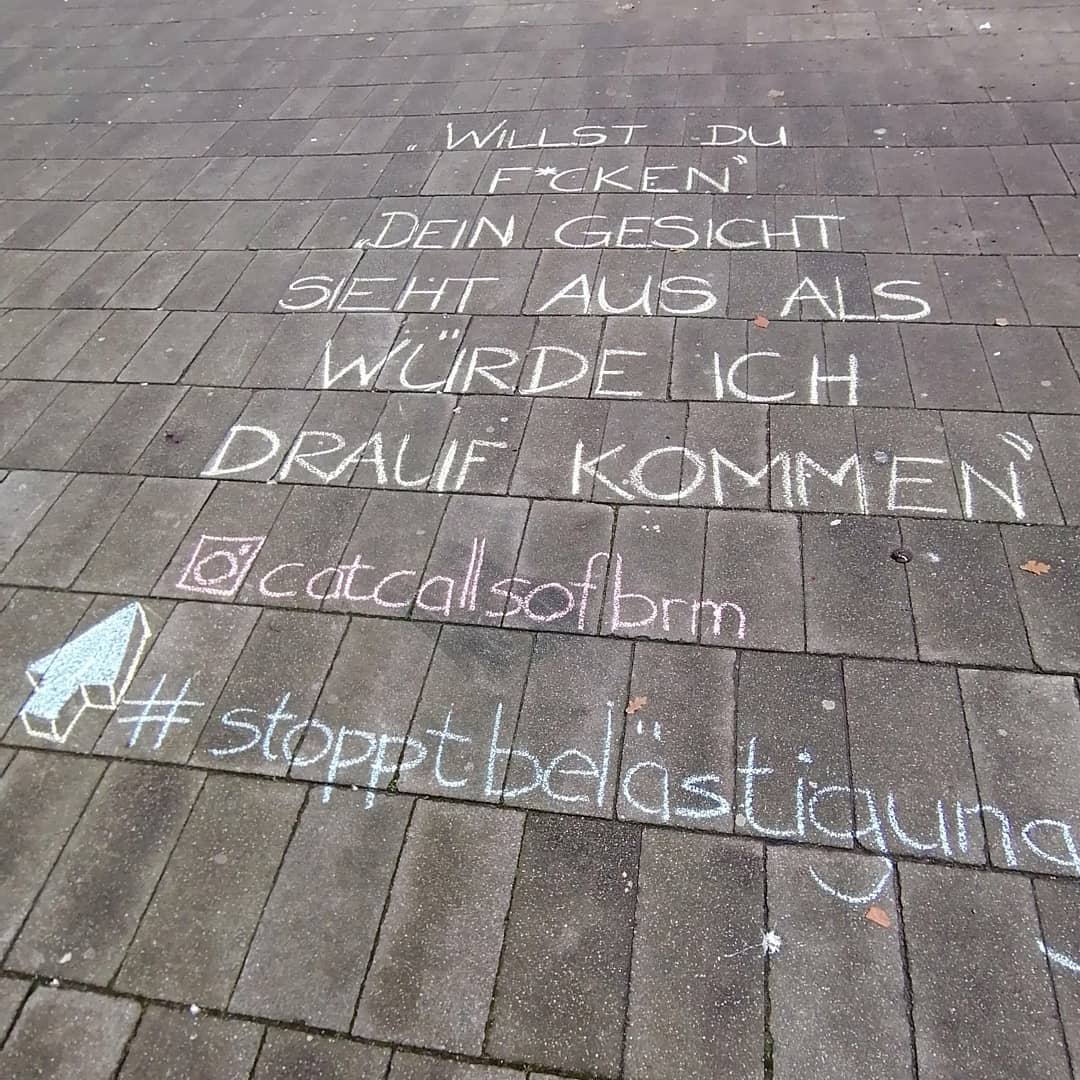 „WILLST DU
F*CKEN”
„DEIN GESICHT
SIEHT AUS ALS
WÜRDE ICH
DRAUF KOMMEN”
catcallsofbrm
#stopptbelästigung